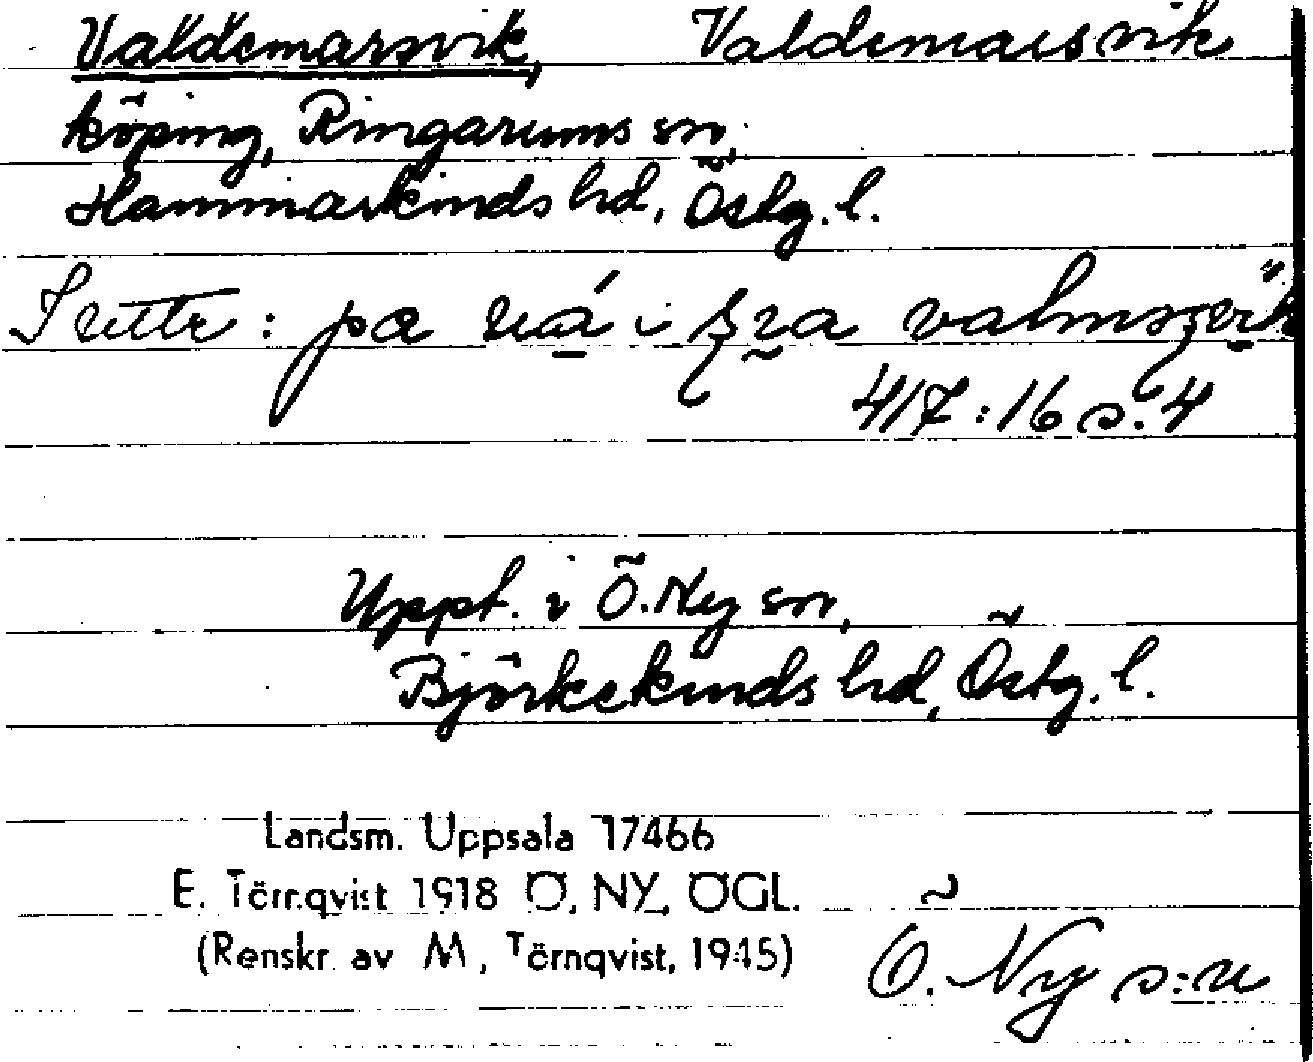 Valdemarsvik, Valdemarsvik
köping, Ringarums sn,
Hammarkinds hd, Östg. l.
417:16 s. 4
Uppt. i Ö. Ny sn,
Björkekinds hd, Östg. l.
Landsm. Uppsala 17466
E. Törnqvist 1918 Ö. NY, ÖGL.
(Renskr. av M. Törnqvist, 1945)
Ö. Ny s:n